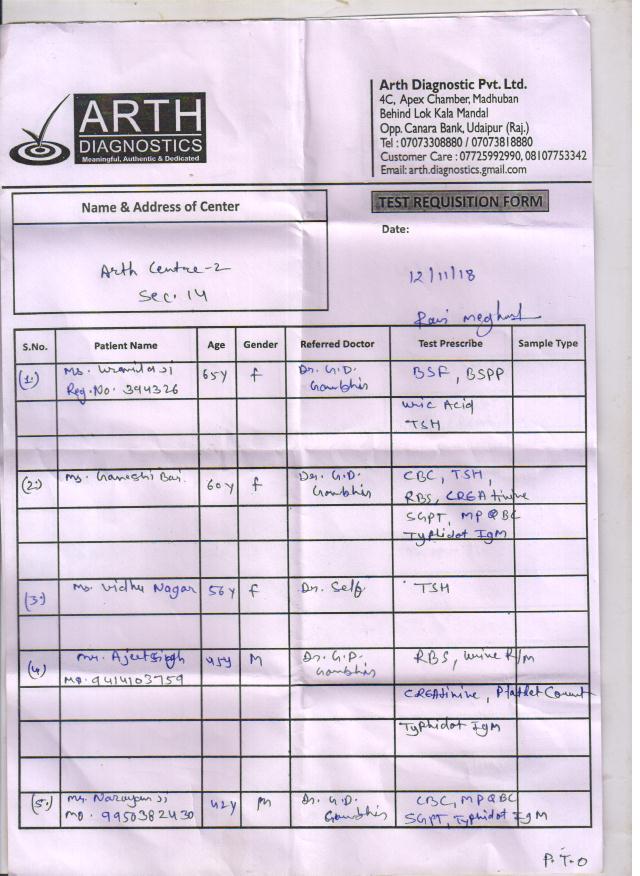 ARTH
DIAGNOSTICS
Meaningful, Authentic & Dedicated
Arth Diagnostic Pvt. Ltd.
4C, Apex Chamber, Madhuban
Behind Lok Kala Mandal
Opp. Canara Bank, Udaipur (Raj.)
Tel : 07073308880 / 07073818880
Customer Care : 07725992990, 08107753342
Email: arth.diagnostics.gmail.com
Name & Address of Center
Arth Centre-2
Sec. 14
TEST REQUISITION FORM
Date:
12/11/18
Ravi
S.No. Patient Name Age Gender Referred Doctor Test Prescribe Sample Type
(1.) Ms. 65y f Dr. G.D. BSF, BSPP
Reg. No. 394326
Uric Acid
TSH
(2.) Ms. Ganeshi Bai 60y f Dr. G.D. CBC, TSH,
RBS, CREAtinine
SGPT, MP QBC
Typhidot IgM
(3.) Ms. Vidhu Nagar 56y f Dr. Self TSH
(4) Mr. Ajeet Singh 45y M Dr. G.D. RBS, Urine R/M
Mo. 9414103759
CREAtinine, Platelet Count
Typhidot IgM
(5.) Mr. Narayan Ji 42y M Dr. G.D. CBC, MP QBC
Mo. 9950382430 SGPT, Typhidot IgM
P.T.O